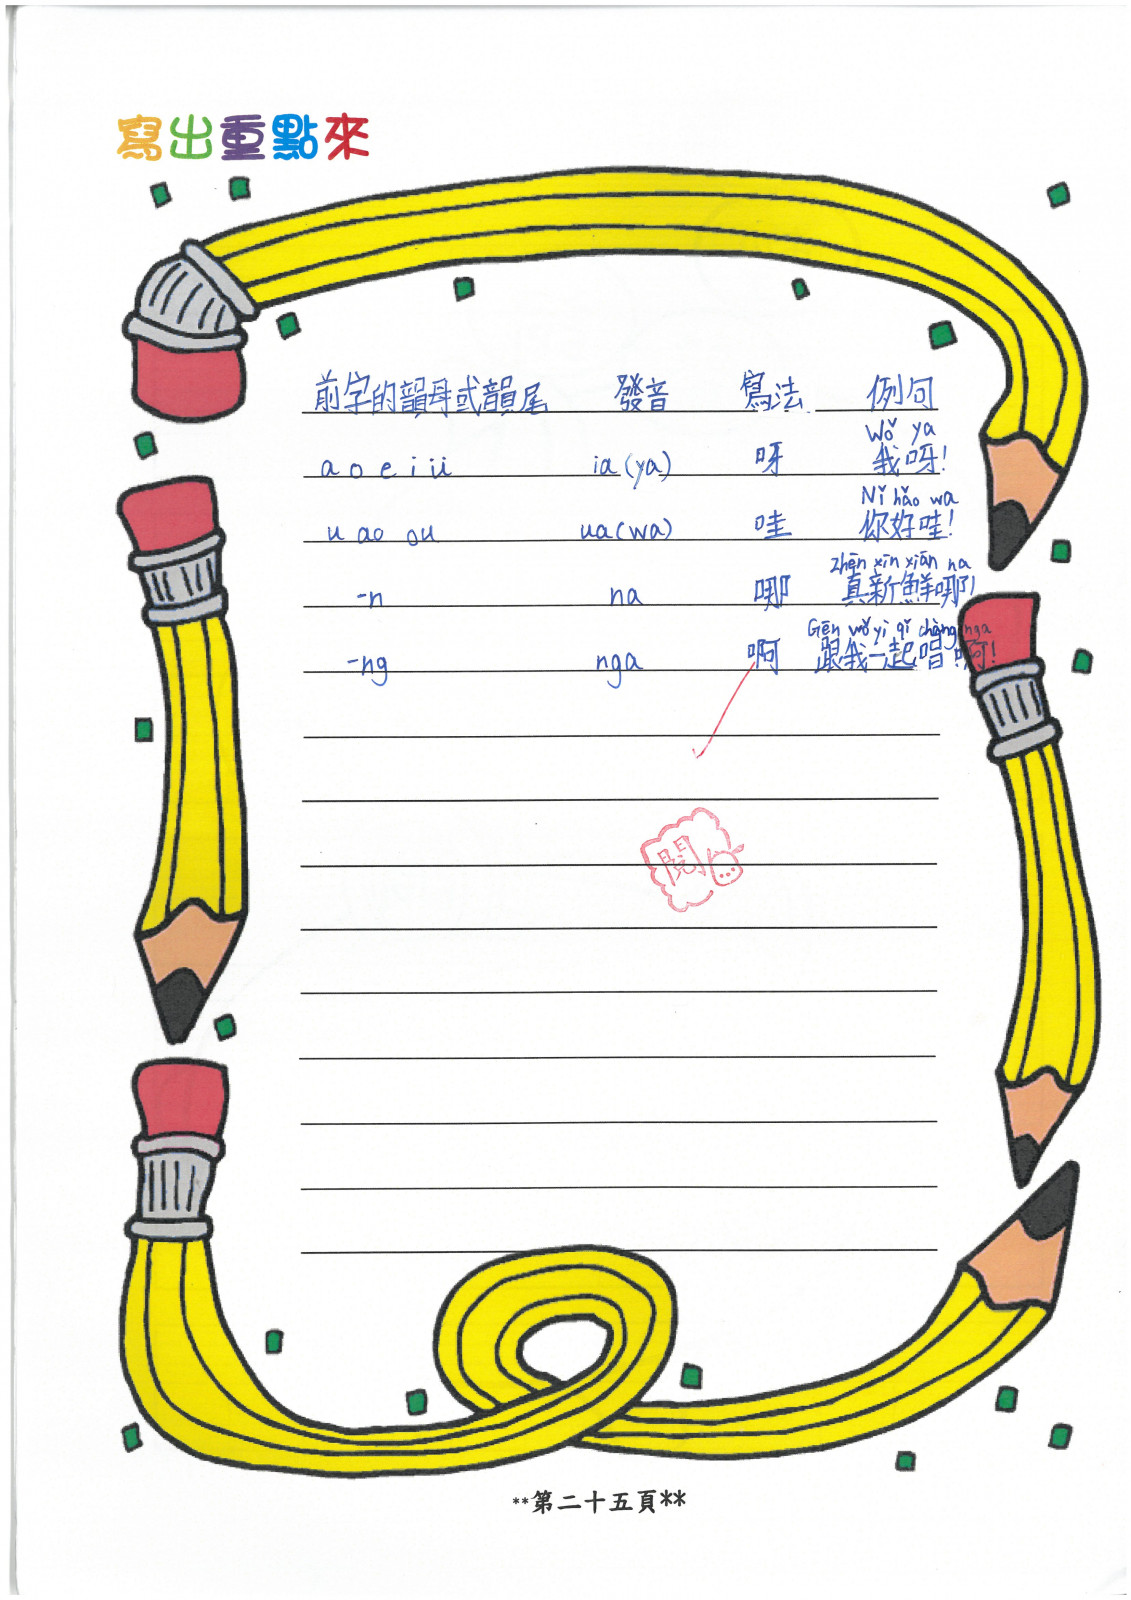 寫出重點來
前字的韻母或韻尾 發音 寫法 例句
Wǒ ya
a o e i ü ia(ya) 呀 我呀!
Nǐ hǎo wa
u ao ou ua(wa) 哇 你好哇!
zhēn xīn xiān na
-n na 哪 真新鮮哪!
Gēn wǒ yì qǐ chàng nga
-ng nga 啊 跟我一起唱啊!
閱
**第二十五頁**